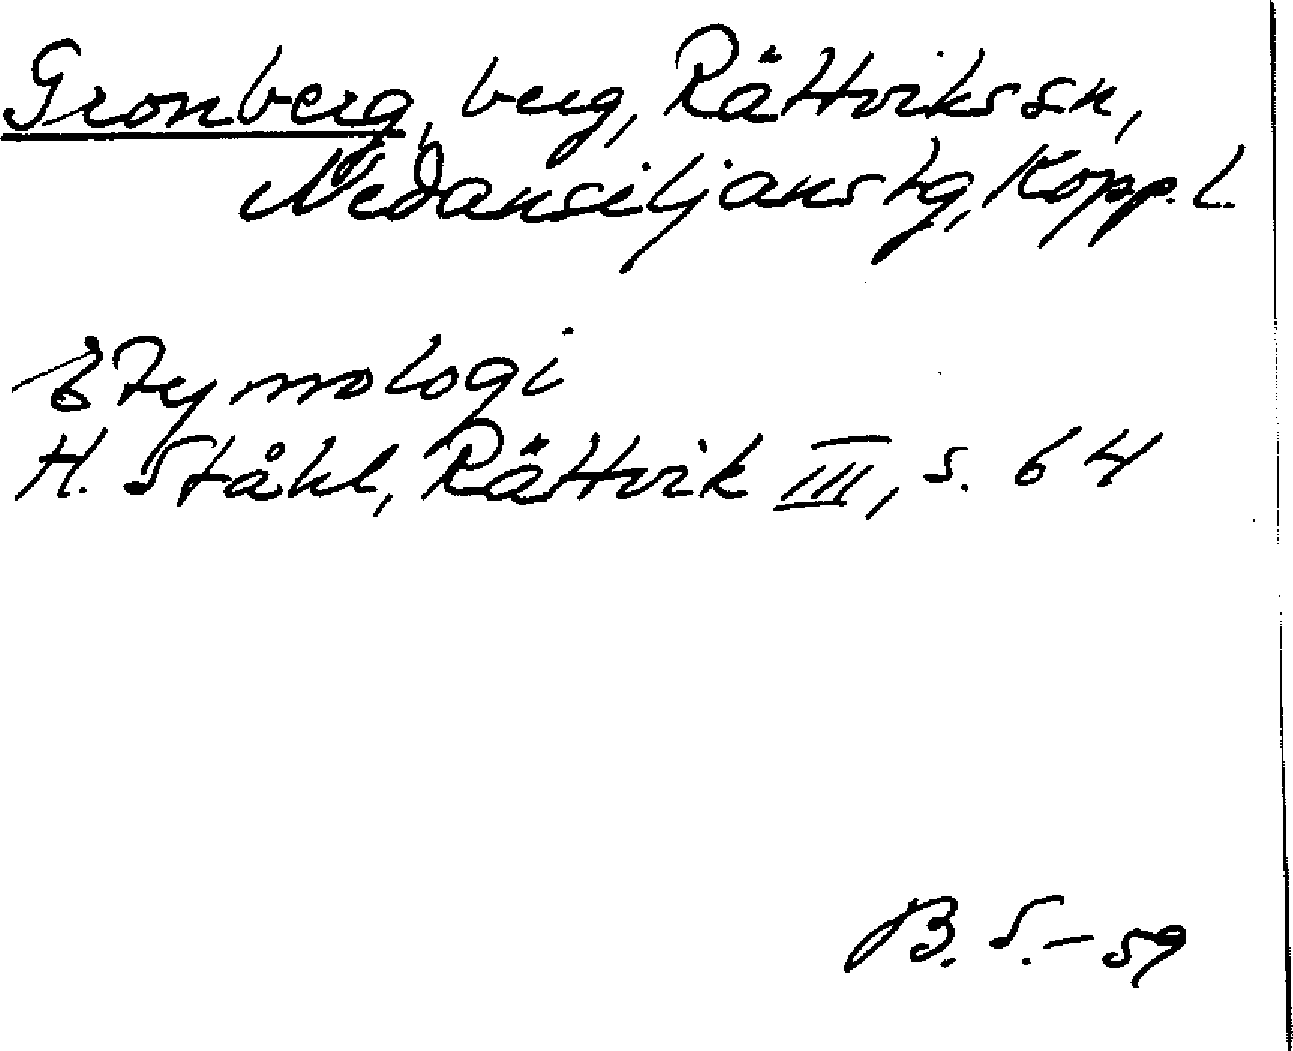 Gronberg, berg, Rättviks sn,
Nedansiljans tg, Kopp. l.
Etymologi
H. Ståhl, Rättvik III, s. 64
B. S. - 59